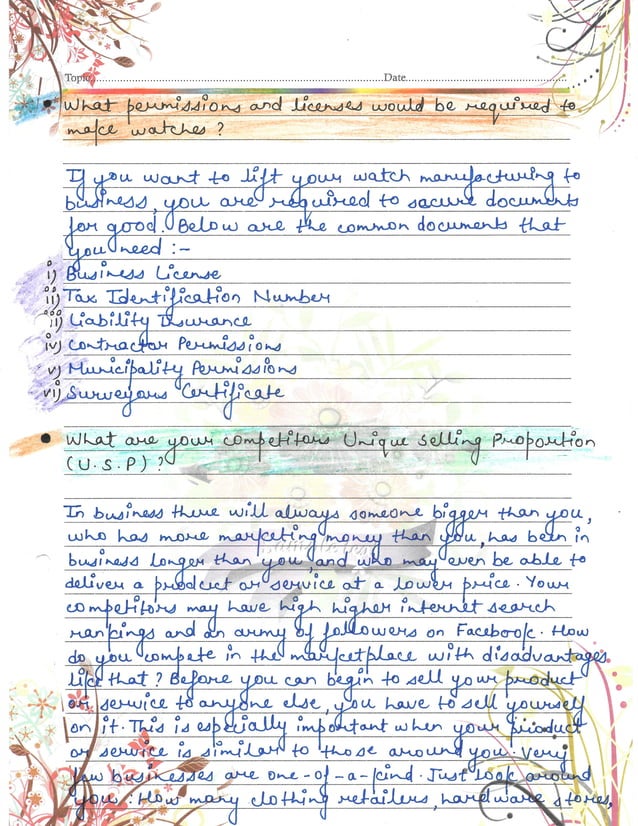 Topic.......... Date..........
1
• What permissions and licenses would be required to
make watches ?
If you want to lift your watch manufacturing to
business, you are required to secure documents
for good. Below are the common documents that
you need :-
i) Business License
ii) Tax Identification Number
iii) Liability Insurance
iv) Contractor Permissions
v) Municipality Permissions
vi) Surveyors Certificate
• What are your competitors Unique Selling Proportion
(U.S.P) ?
In business there will always someone bigger than you,
who has more marketing money than you, has been in
business longer than you, and who may even be able to
deliver a product or service at a lower price. Your
competitors may have high higher internet search
rankings and an army of followers on Facebook. How
do you compete in the marketplace with disadvantages
like that ? Before you can begin to sell your product
or service to anyone else, you have to sell yourself
on it. This is especially important when your product
or service is similar to those around you. Very
few businesses are one-of-a-kind. Just look around
you : How many clothing retailers, hardware stories,